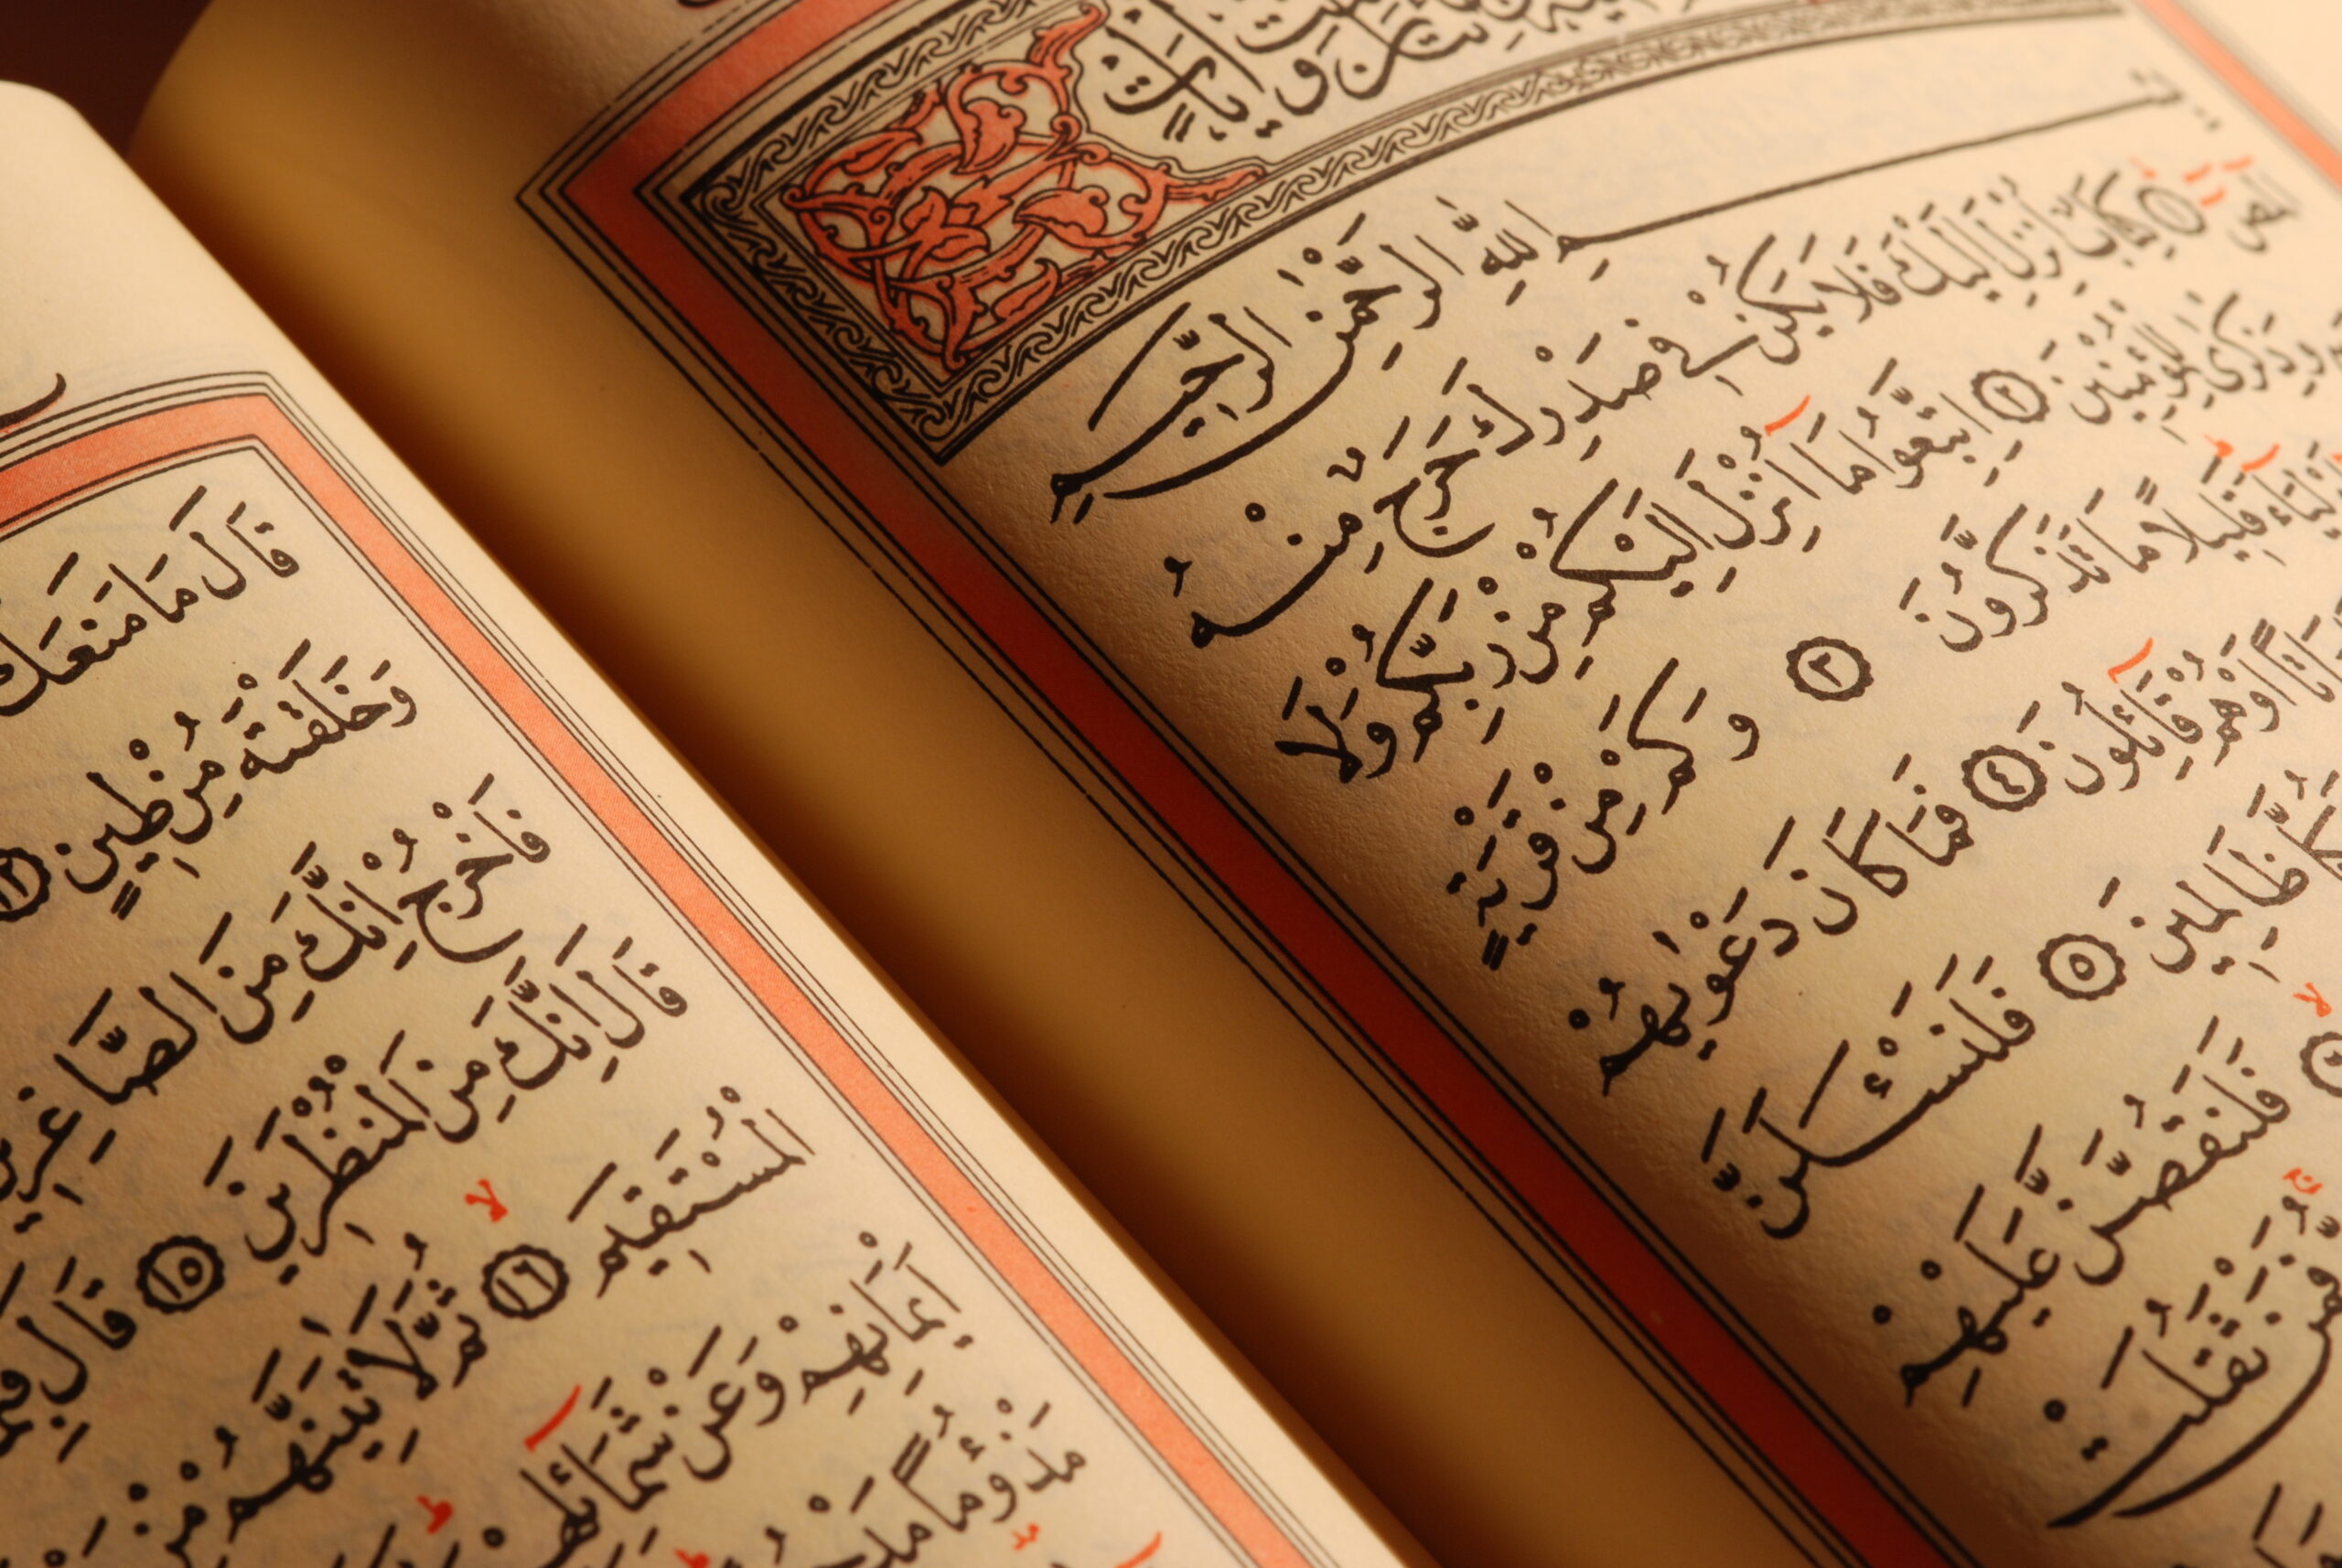 بِسْمِ اللّٰهِ الرَّحْمٰنِ الرَّحِيمِ
الٓمٓصٓ ﴿١﴾ كِتَابٌ اُنْزِلَ اِلَيْكَ فَلَا يَكُنْ فِى صَدْرِكَ حَرَجٌ مِنْهُ
وَذِكْرٰى لِلْمُؤْمِنِينَ ﴿٢﴾ اِتَّبِعُوا مَٓا اُنْزِلَ اِلَيْكُمْ مِنْ رَبِّكُمْ وَلَا
قَلِيلًا مَا تَذَكَّرُونَ ﴿٣﴾ وَكَمْ مِنْ قَرْيَةٍ
اَوْ هُمْ قَٓائِلُونَ ﴿٤﴾ فَمَا كَانَ دَعْوٰيهُمْ
ظَالِمِينَ ﴿٥﴾ فَلَنَسْـَٔلَنَّ
فَلَنَقُصَّنَّ عَلَيْهِمْ
فَمَنْ ثَقُلَتْ
قَالَ مَا مَنَعَكَ
وَخَلَقْتَهُ مِنْ طِينٍ ﴿١٢﴾
فَاخْرُجْ اِنَّكَ مِنَ الصَّاغِرِينَ
قَالَ اِنَّكَ مِنَ الْمُنْظَرِينَ ﴿١٥﴾ قَالَ
الْمُسْتَقِيمَ ﴿١٦﴾ ثُمَّ لَاٰتِيَنَّهُمْ مِنْ
اَيْمَانِهِمْ وَعَنْ شَمَٓائِلِهِمْ
مَذْؤُمًا